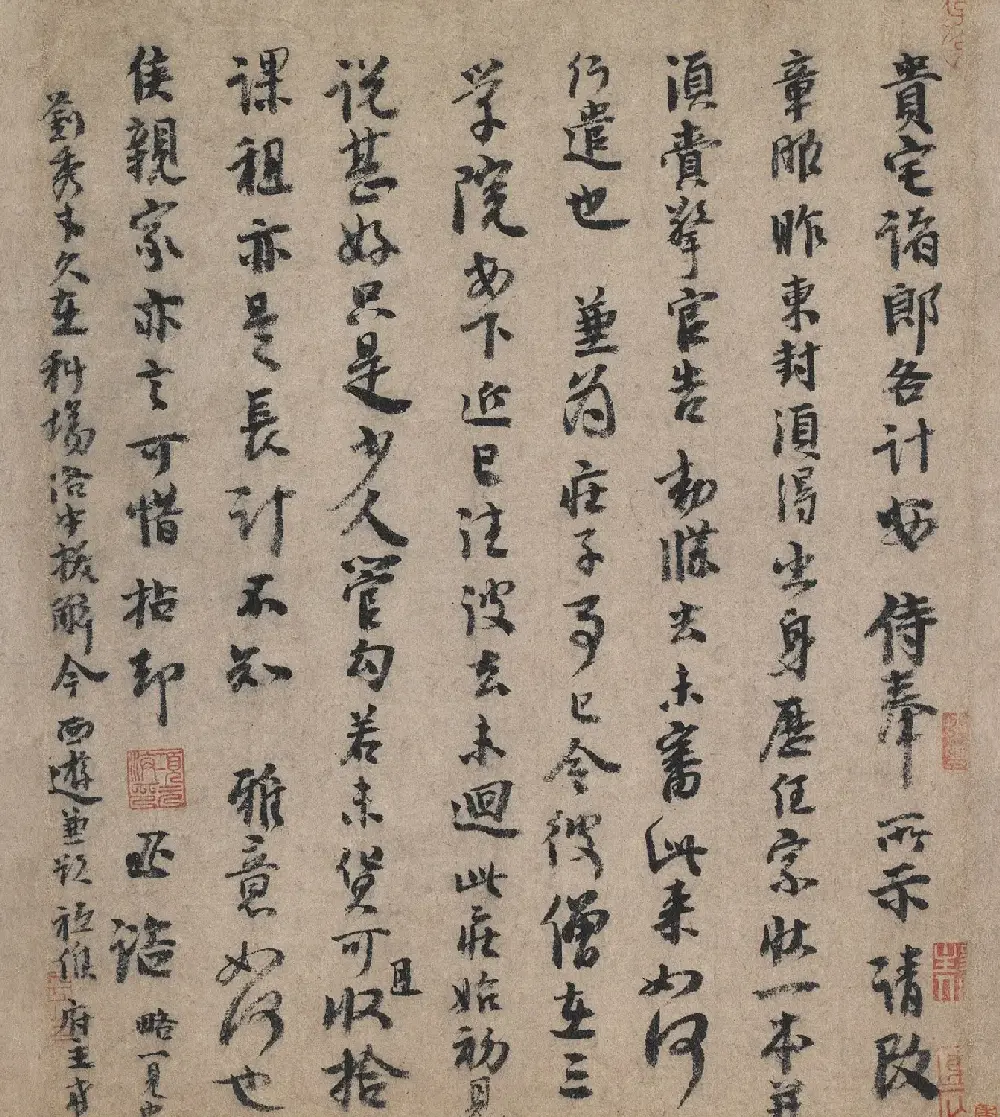 貴宅諸郎各計安 侍奉 所示 請改
章服昨東封須得出身歷任家狀一本并
須賣擎官告敕牒去未審此來如何
行遣也 兼為莊子事已令彼僧在三
學院安下近已往彼去未迴此莊始初見
說甚好只是少人管勾若未貨可且收拾
課租亦是長計不知 雅意如何也
侯親家亦言可惜拈却 略一見
劉秀才久在科場洛中拔解今西遊兼欲 祗候 府主